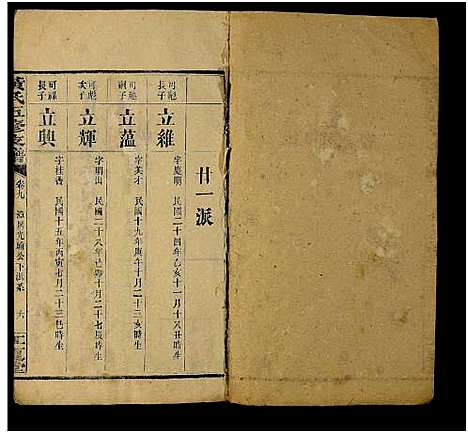 廿一派
可彪長子
立維
字慶明 民國二十四年乙亥十一月十又丑時生
可
嗣子
立蘊
字美才 民國十九年庚午十月二十三亥時生
可彪次子
立輝
字明山 民國二十八年己卯十月二十七辰時生
可
長子
立興
字桂香 民國十五年丙寅七月二十三巳時生
黃氏五修支譜
卷九
公下派系
六